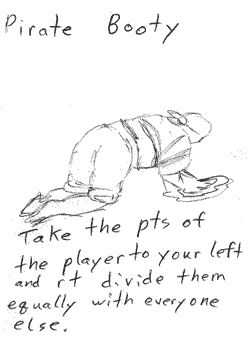 Pirate Booty
Take the pts of
the player to your left
and rt divide them
equally with everyone
else.